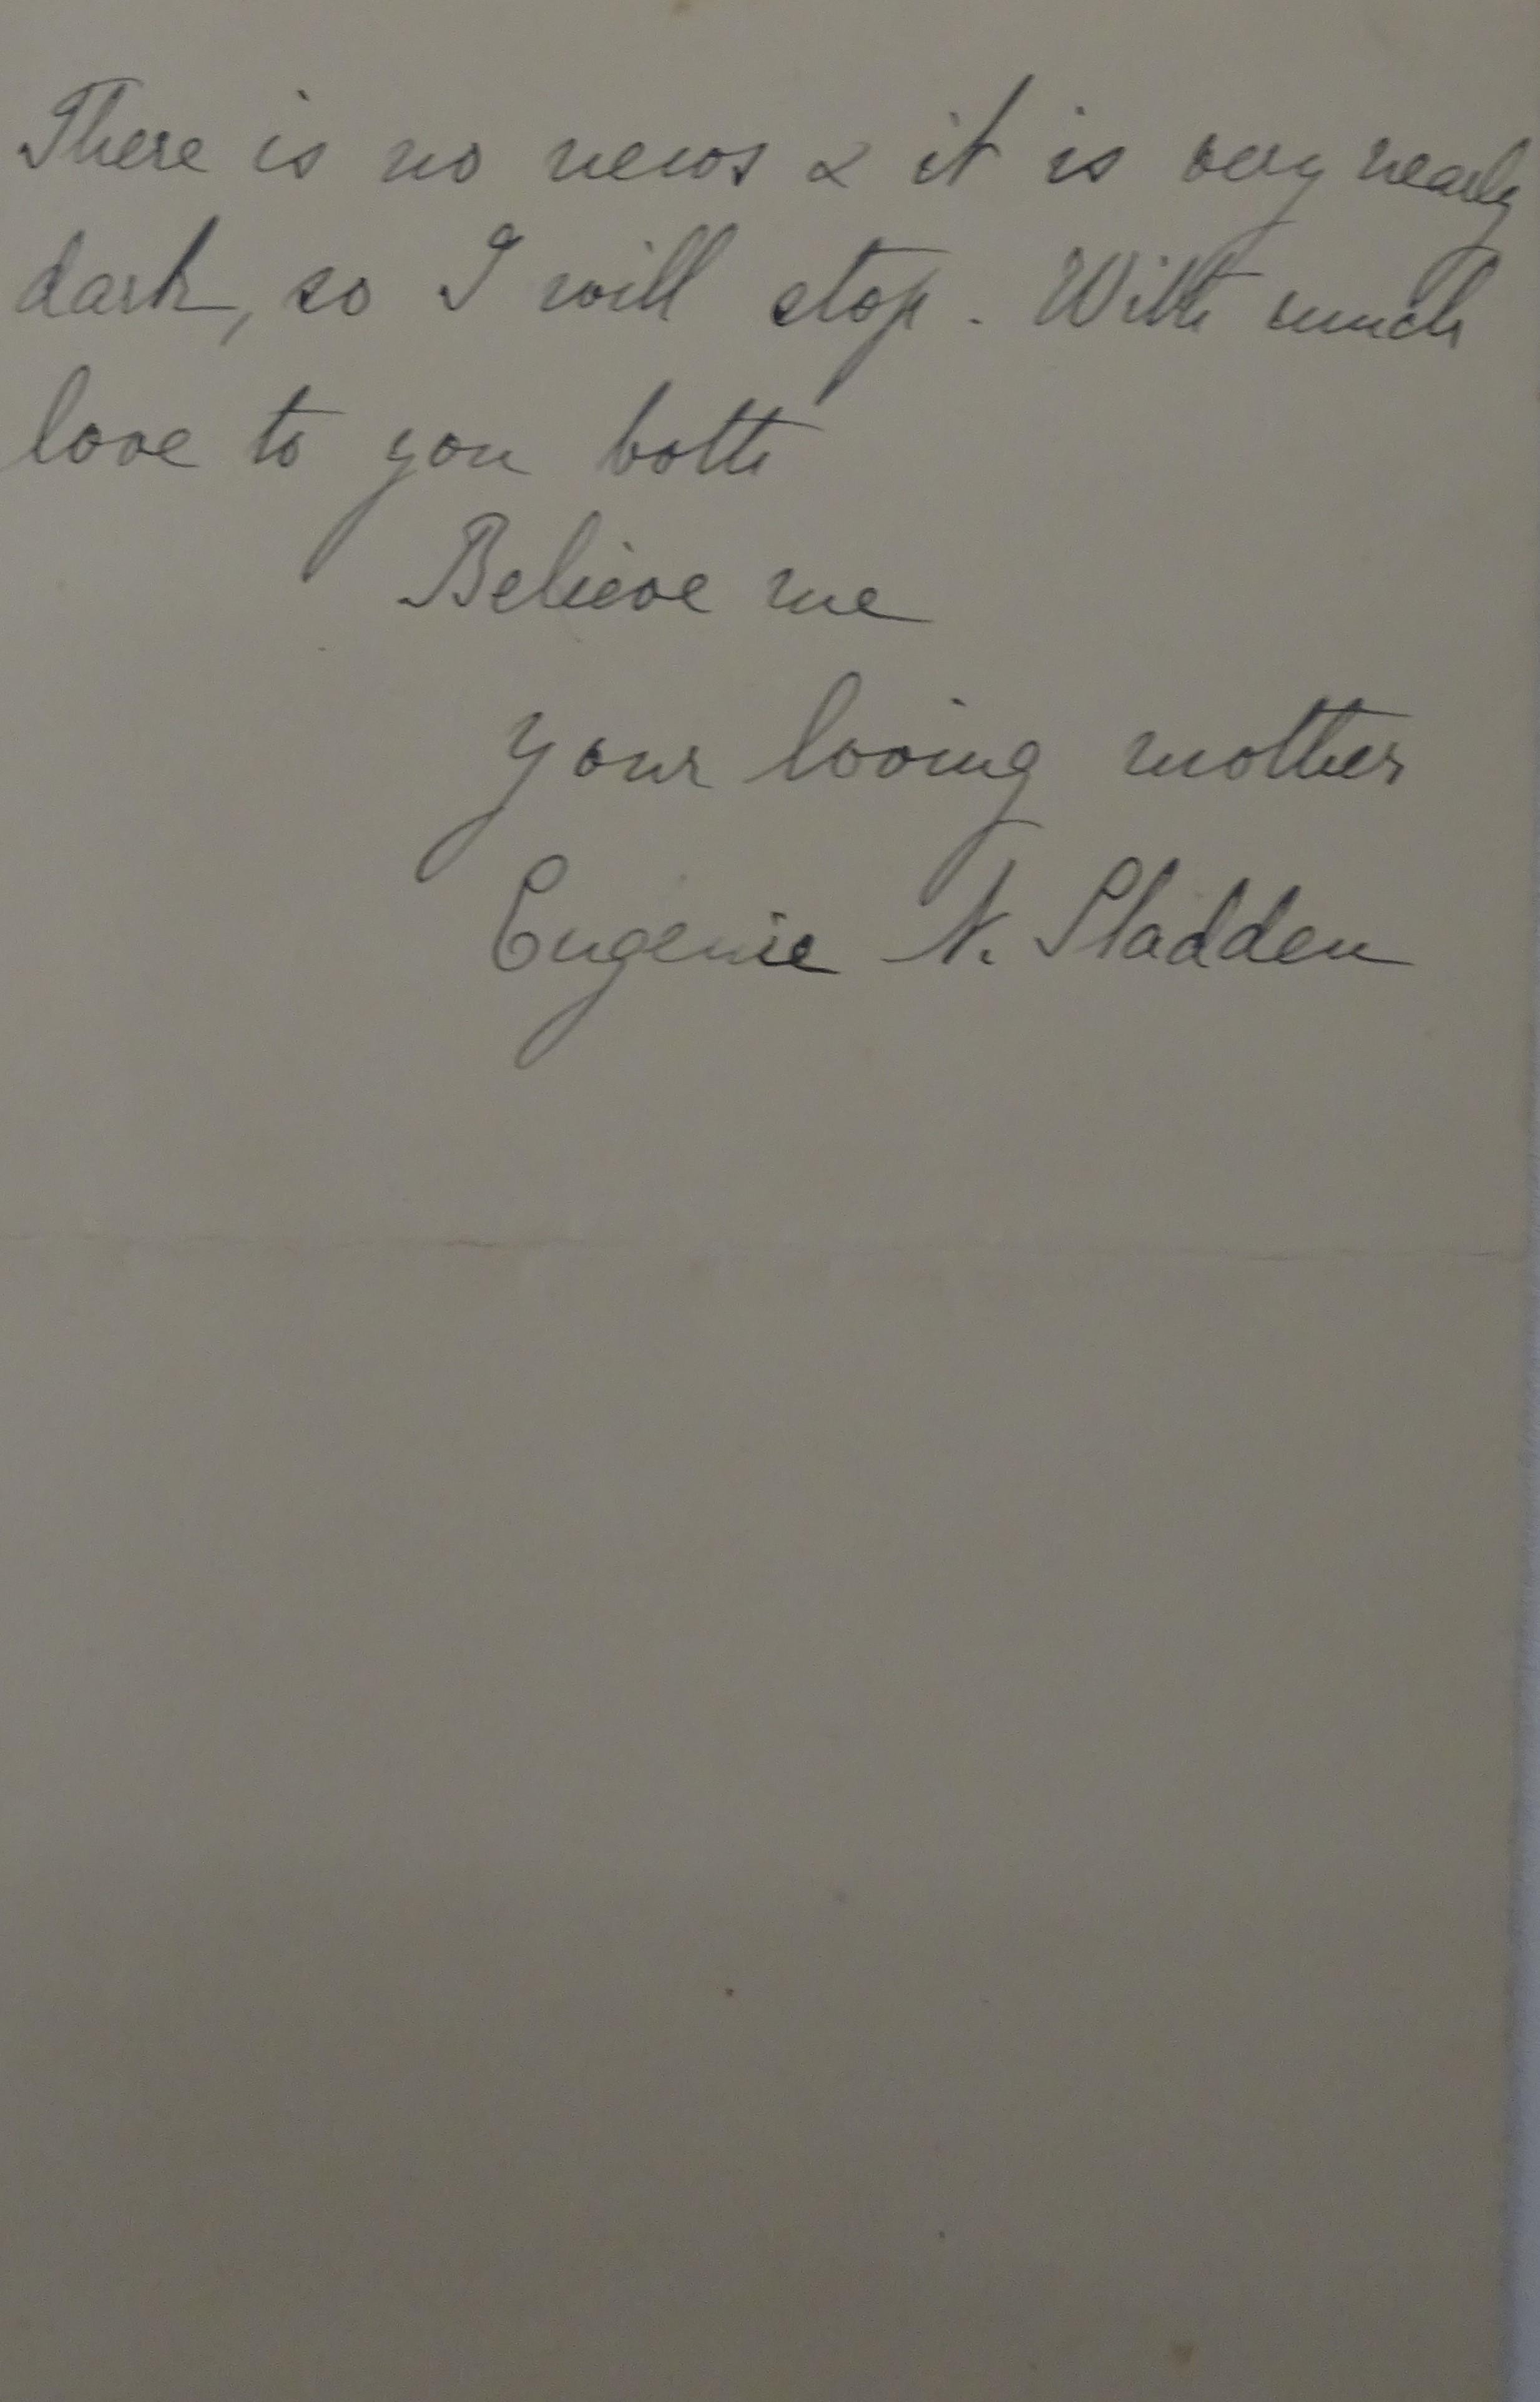 There is no news & it is very nearly
dark, so I will stop. With much
love to you both
Believe me
your loving mother
Eugénie N. Sladden